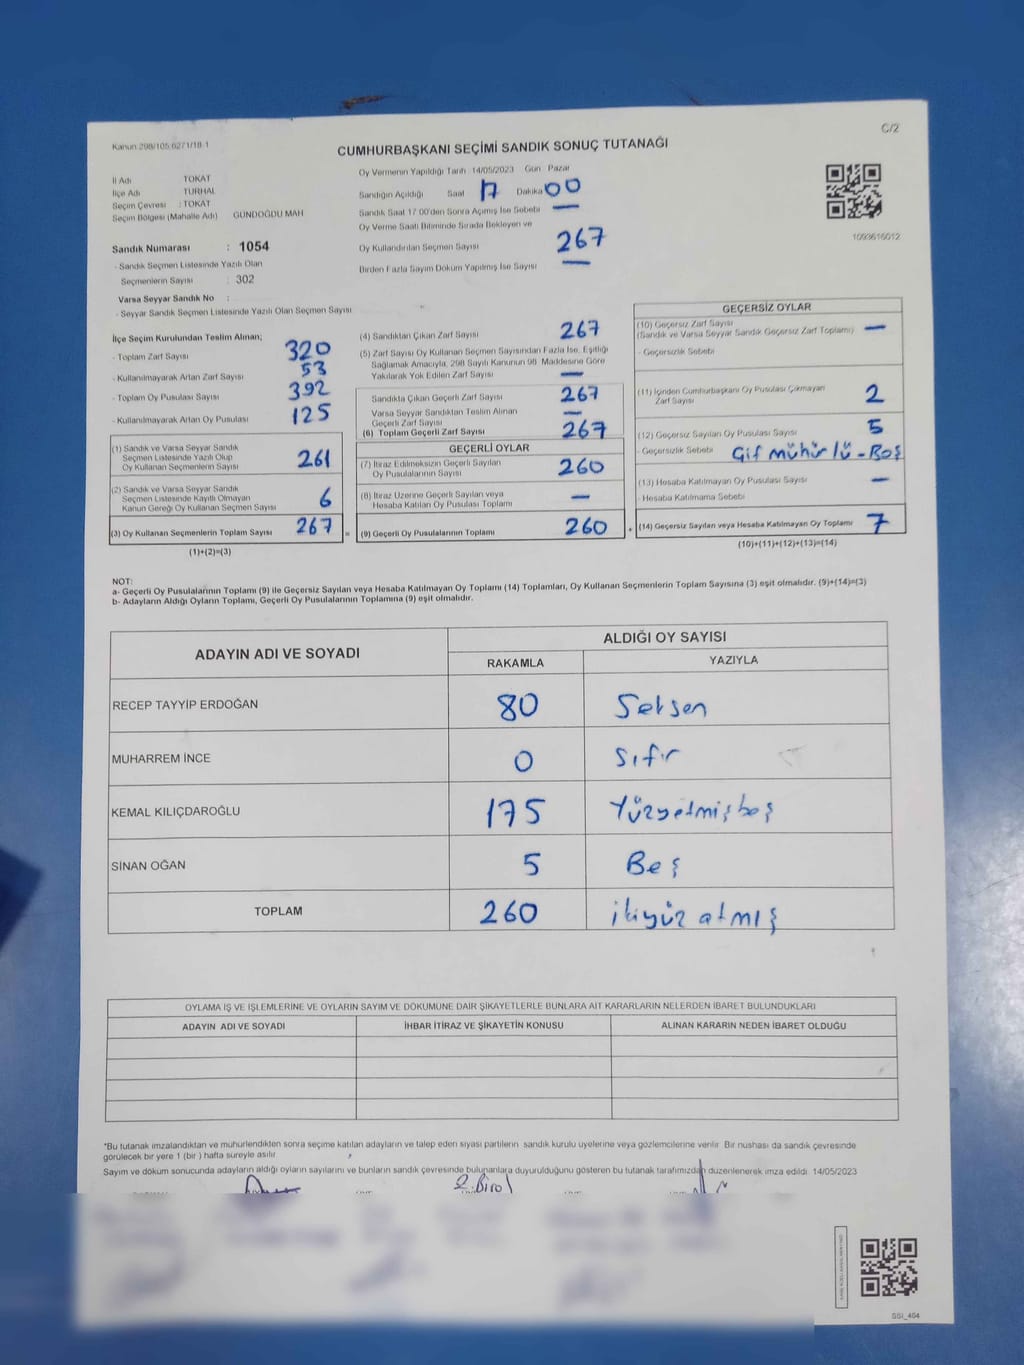 C/2
Kanun 298/105,6271/18-1
CUMHURBAŞKANI SEÇİMİ SANDIK SONUÇ TUTANAĞI
İl Adı TOKAT
İlçe Adı TURHAL
Seçim Çevresi : TOKAT
Seçim Bölgesi (Mahalle Adı) GÜNDOĞDU MAH
Sandık Numarası : 1054
- Sandık Seçmen Listesinde Yazılı Olan
Seçmenlerin Sayısı : 302
Varsa Seyyar Sandık No :
- Seyyar Sandık Seçmen Listesinde Yazılı Olan Seçmen Sayısı
Oy Vermenin Yapıldığı Tarih 14/05/2023 Gün Pazar
Sandığın Açıldığı Saat 17 Dakika 00
Sandık Saat 17 00'den Sonra Açımış İse Sebebi —
Oy Verme Saati Bitiminde Sırada Bekleyen ve
Oy Kullandırılan Seçmen Sayısı 267
Birden Fazla Sayım Döküm Yapılmış İse Sayısı —
1093616012
İlçe Seçim Kurulundan Teslim Alınan;
- Toplam Zarf Sayısı 320
- Kullanılmayarak Artan Zarf Sayısı 53
- Toplam Oy Pusulası Sayısı 392
- Kullanılmayarak Artan Oy Pusulası 125
(1) Sandık ve Varsa Seyyar Sandık
Seçmen Listesinde Yazılı Olup
Oy Kullanan Seçmenlerin Sayısı 261
(2) Sandık ve Varsa Seyyar Sandık
Seçmen Listesinde Kayıtlı Olmayan
Kanun Gereği Oy Kullanan Seçmen Sayısı 6
(3) Oy Kullanan Seçmenlerin Toplam Sayısı 267 =
(1)+(2)=(3)
(4) Sandıktan Çıkan Zarf Sayısı 267
(5) Zarf Sayısı Oy Kullanan Seçmen Sayısından Fazla İse, Eşitliği
Sağlamak Amacıyla, 298 Sayılı Kanunun 98. Maddesine Göre
Yakılarak Yok Edilen Zarf Sayısı —
Sandıkta Çıkan Geçerli Zarf Sayısı 267
Varsa Seyyar Sandıktan Teslim Alınan
Geçerli Zarf Sayısı —
(6) Toplam Geçerli Zarf Sayısı 267
GEÇERLİ OYLAR
(7) İtiraz Edilmeksizin Geçerli Sayılan
Oy Pusulalarının Sayısı 260
(8) İtiraz Üzerine Geçerli Sayılan veya
Hesaba Katılan Oy Pusulası Toplamı —
(9) Geçerli Oy Pusulalarının Toplamı 260 +
GEÇERSİZ OYLAR
(10) Geçersiz Zarf Sayısı
(Sandık ve Varsa Seyyar Sandık Geçersiz Zarf Toplamı) —
- Geçersizlik Sebebi
(11) İçinden Cumhurbaşkanı Oy Pusulası Çıkmayan
Zarf Sayısı 2
(12) Geçersiz Sayılan Oy Pusulası Sayısı 5
- Geçersizlik Sebebi Çift mühürlü - Boş
(13) Hesaba Katılmayan Oy Pusulası Sayısı —
- Hesaba Katılmama Sebebi
(14) Geçersiz Sayılan veya Hesaba Katılmayan Oy Toplamı 7
(10)+(11)+(12)+(13)=(14)
NOT:
a- Geçerli Oy Pusulalarının Toplamı (9) ile Geçersiz Sayılan veya Hesaba Katılmayan Oy Toplamı (14) Toplamları, Oy Kullanan Seçmenlerin Toplam Sayısına (3) eşit olmalıdır. (9)+(14)=(3)
b- Adayların Aldığı Oyların Toplamı, Geçerli Oy Pusulalarının Toplamına (9) eşit olmalıdır.
ADAYIN ADI VE SOYADI ALDIĞI OY SAYISI
RAKAMLA YAZIYLA
RECEP TAYYİP ERDOĞAN 80 Seksen
MUHARREM İNCE 0 Sıfır
KEMAL KILIÇDAROĞLU 175 Yüzyetmişbeş
SİNAN OĞAN 5 Beş
TOPLAM 260 ikiyüz atmış
OYLAMA İŞ VE İŞLEMLERİNE VE OYLARIN SAYIM VE DÖKÜMÜNE DAİR ŞİKAYETLERLE BUNLARA AİT KARARLARIN NELERDEN İBARET BULUNDUKLARI
ADAYIN ADI VE SOYADI İHBAR İTİRAZ VE ŞİKAYETİN KONUSU ALINAN KARARIN NEDEN İBARET OLDUĞU
*Bu tutanak imzalandıktan ve mühürlendikten sonra seçime katılan adayların ve talep eden siyasi partilerin sandık kurulu üyelerine veya gözlemcilerine verilir. Bir nüshası da sandık çevresinde
görülecek bir yere 1 (bir) hafta süreyle asılır.
Sayım ve döküm sonucunda adayların aldığı oyların sayılarını ve bunların sandık çevresinde bulunanlara duyurulduğunu gösteren bu tutanak tarafımızdan düzenlenerek imza edildi. 14/05/2023
SSI_464